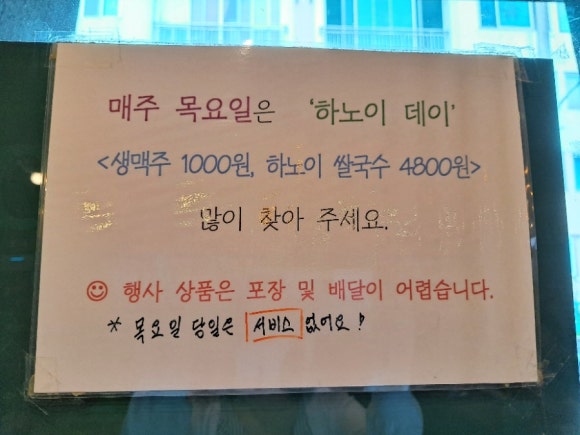 매주 목요일은 '하노이 데이'
<생맥주 1000원, 하노이 쌀국수 4800원>
많이 찾아 주세요.
☺ 행사 상품은 포장 및 배달이 어렵습니다.
* 목요일 당일은 서비스 없어요!